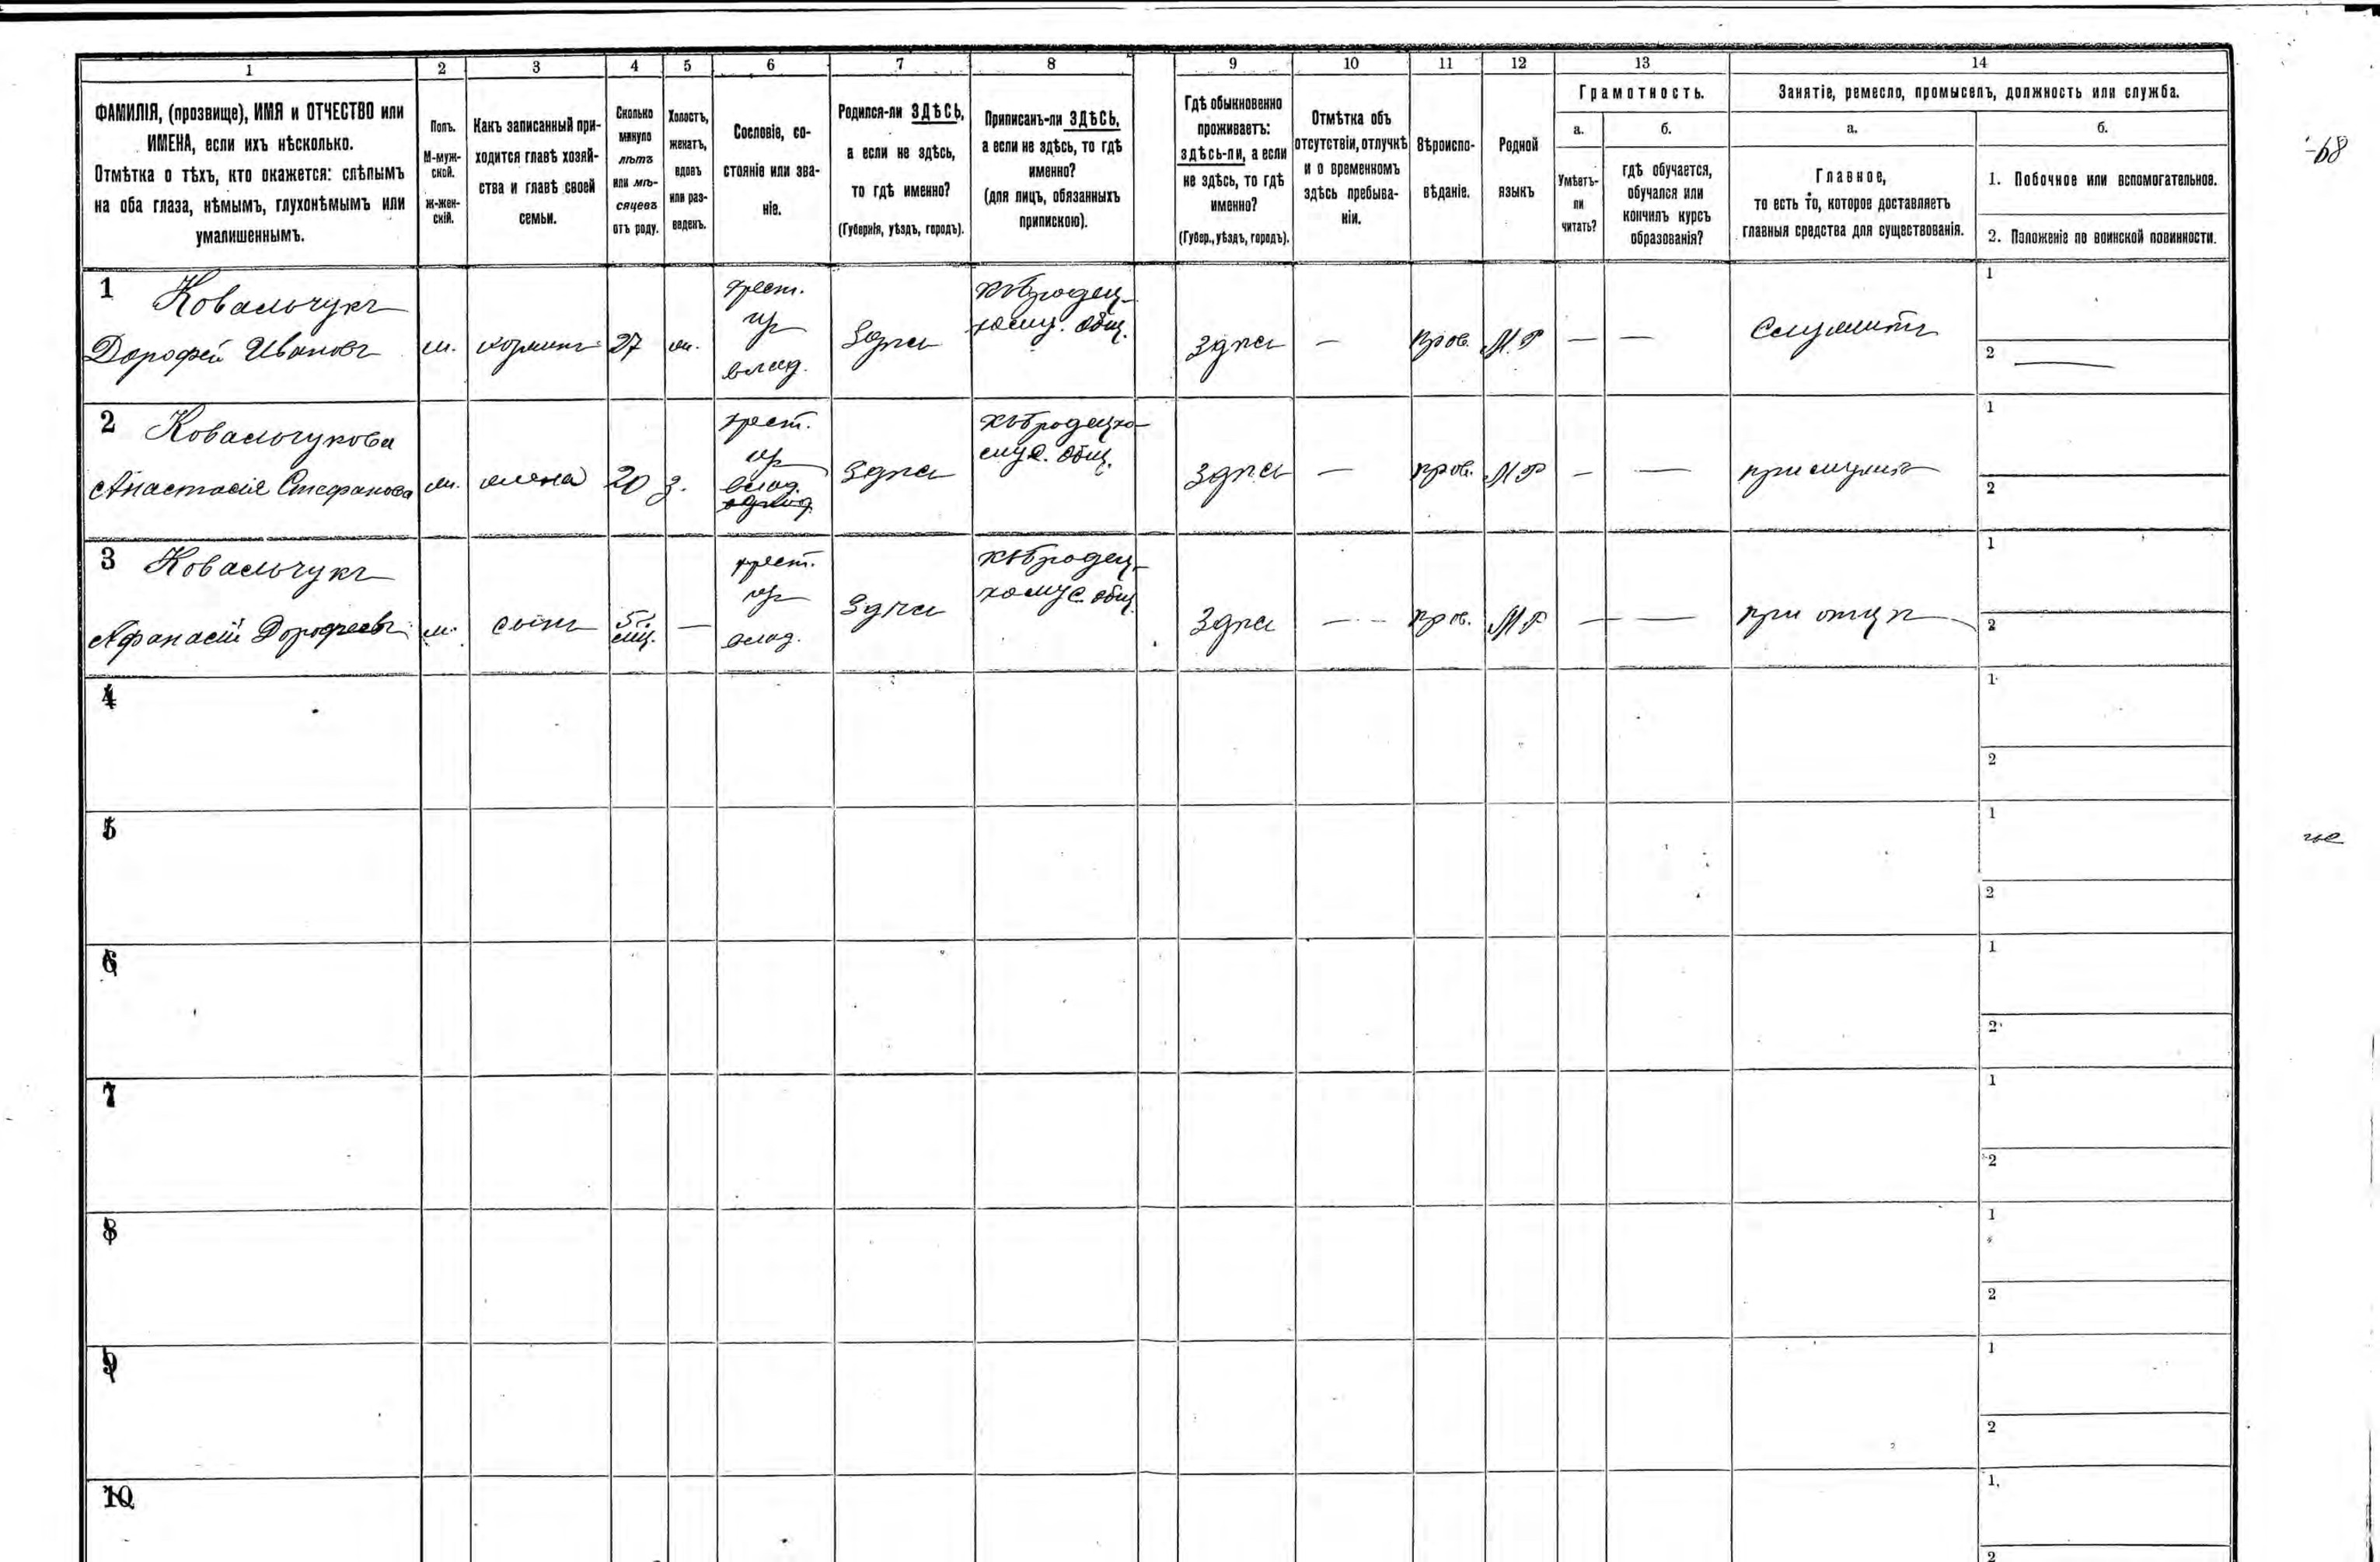 1 2 3 4 5 6 7 8 9 10 11 12 13 14
ФАМИЛІЯ, (прозвище), ИМЯ и ОТЧЕСТВО или
ИМЕНА, если ихъ нѣсколько.
Отмѣтка о тѣхъ, кто окажется: слѣпымъ
на оба глаза, нѣмымъ, глухонѣмымъ или
умалишеннымъ.
Полъ.
М-муж-
ской.
ж-жен-
скій.
Какъ записанный при-
ходится главѣ хозяй-
ства и главѣ своей
семьи.
Сколько
минуло
лѣтъ
или мѣ-
сяцевъ
отъ роду.
Холостъ,
женатъ,
вдовъ
или раз-
веденъ.
Сословіе, со-
стояніе или зва-
ніе.
Родился-ли ЗДѢСЬ,
а если не здѣсь,
то гдѣ именно?
(Губернія, уѣздъ, городъ).
Приписанъ-ли ЗДѢСЬ,
а если не здѣсь, то гдѣ
именно?
(для лицъ, обязанныхъ
припискою).
Гдѣ обыкновенно
проживаетъ:
здѣсь-ли, а если
не здѣсь, то гдѣ
именно?
(Губер., уѣздъ, городъ).
Отмѣтка объ
отсутствіи, отлучкѣ
и о временномъ
здѣсь пребыва-
ніи.
Вѣроиспо-
вѣданіе.
Родной
языкъ
Грамотность.
а.
Умѣетъ-
ли
читать?
б.
гдѣ обучается,
обучался или
кончилъ курсъ
образованія?
Занятіе, ремесло, промыселъ, должность или служба.
а.
Главное,
то есть то, которое доставляетъ
главныя средства для существованія.
б.
1. Побочное или вспомогательное.
2. Положеніе по воинской повинности.
-68
1 Ковальчукъ
Дорофей Ивановъ
м.
27
крест.
влад.
Здѣсь
общ.
Здѣсь
—
прав.
М.Р
—
—
1
2 —
2 Ковальчукова
Анастасія Стефанова
жена
20
з.
крест.
влад.
Здѣсь
общ.
Здѣсь
—
прав.
М Р
—
—
при мужѣ
1
2
3 Ковальчукъ
Афанасій Дорофеевъ
м.
сынъ
5
мц.
—
крест.
влад.
Здѣсь
Здѣсь
—
прав.
М Р
—
—
при отцѣ
1
2
4
1
2
5
1
2
6
1
2
7
1
2
8
1
2
9
1
2
10
1
2